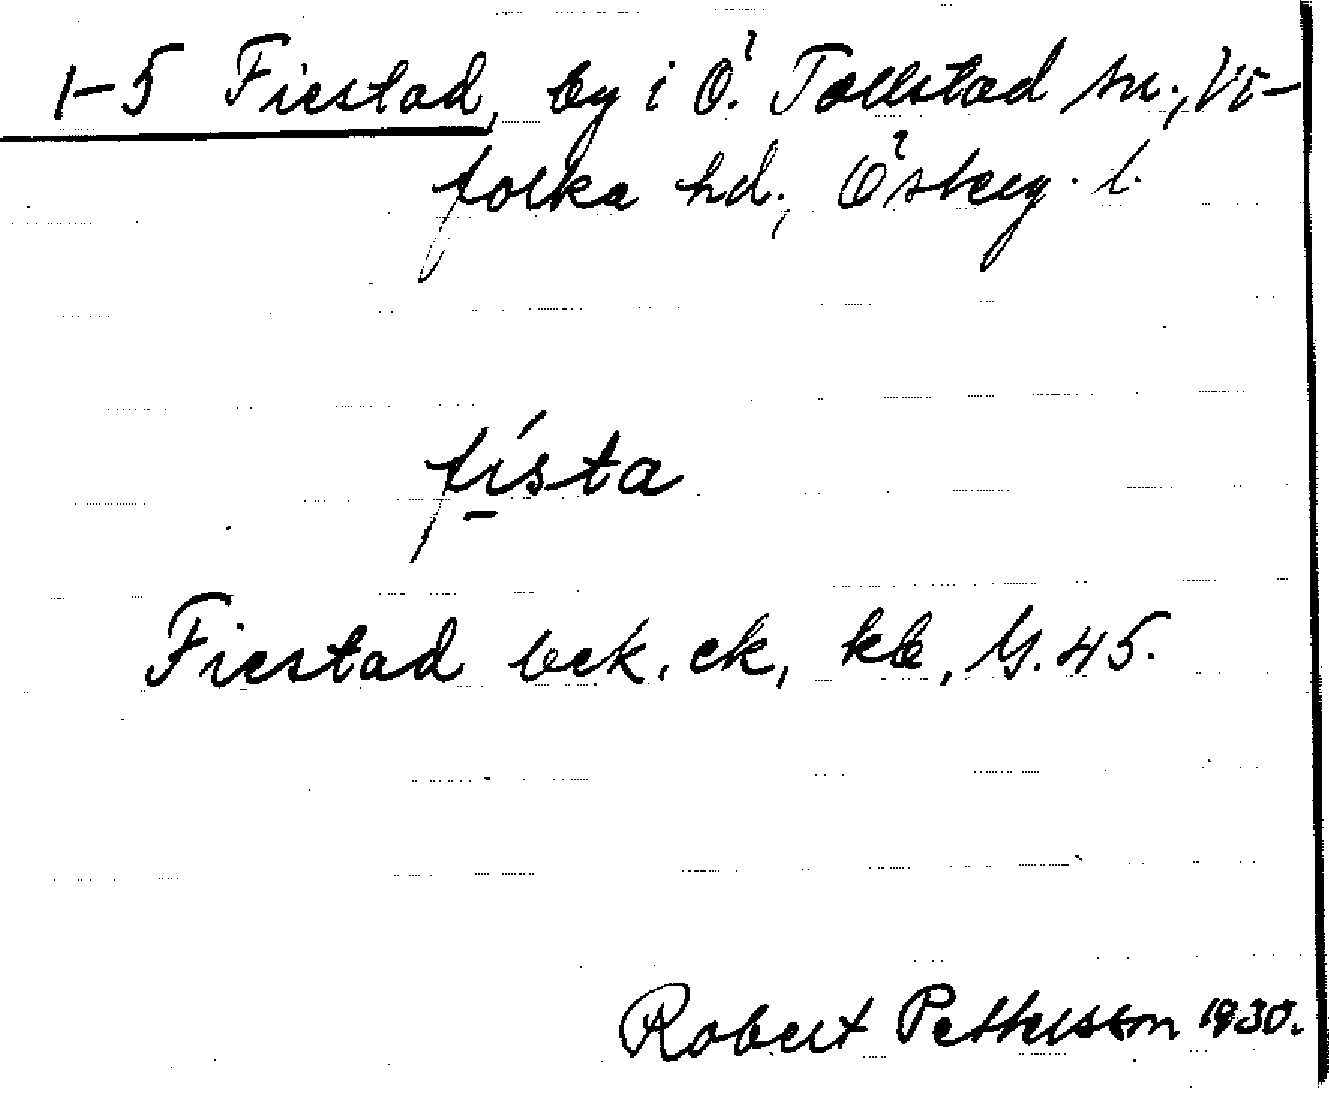 1-5 Fiestad, by i Ö. Tollstad sn., Vi-
folka hd., Österg. l.
fista
Fiestad eck. ek, kb, G. 45.
Robert Pettersson 1930.